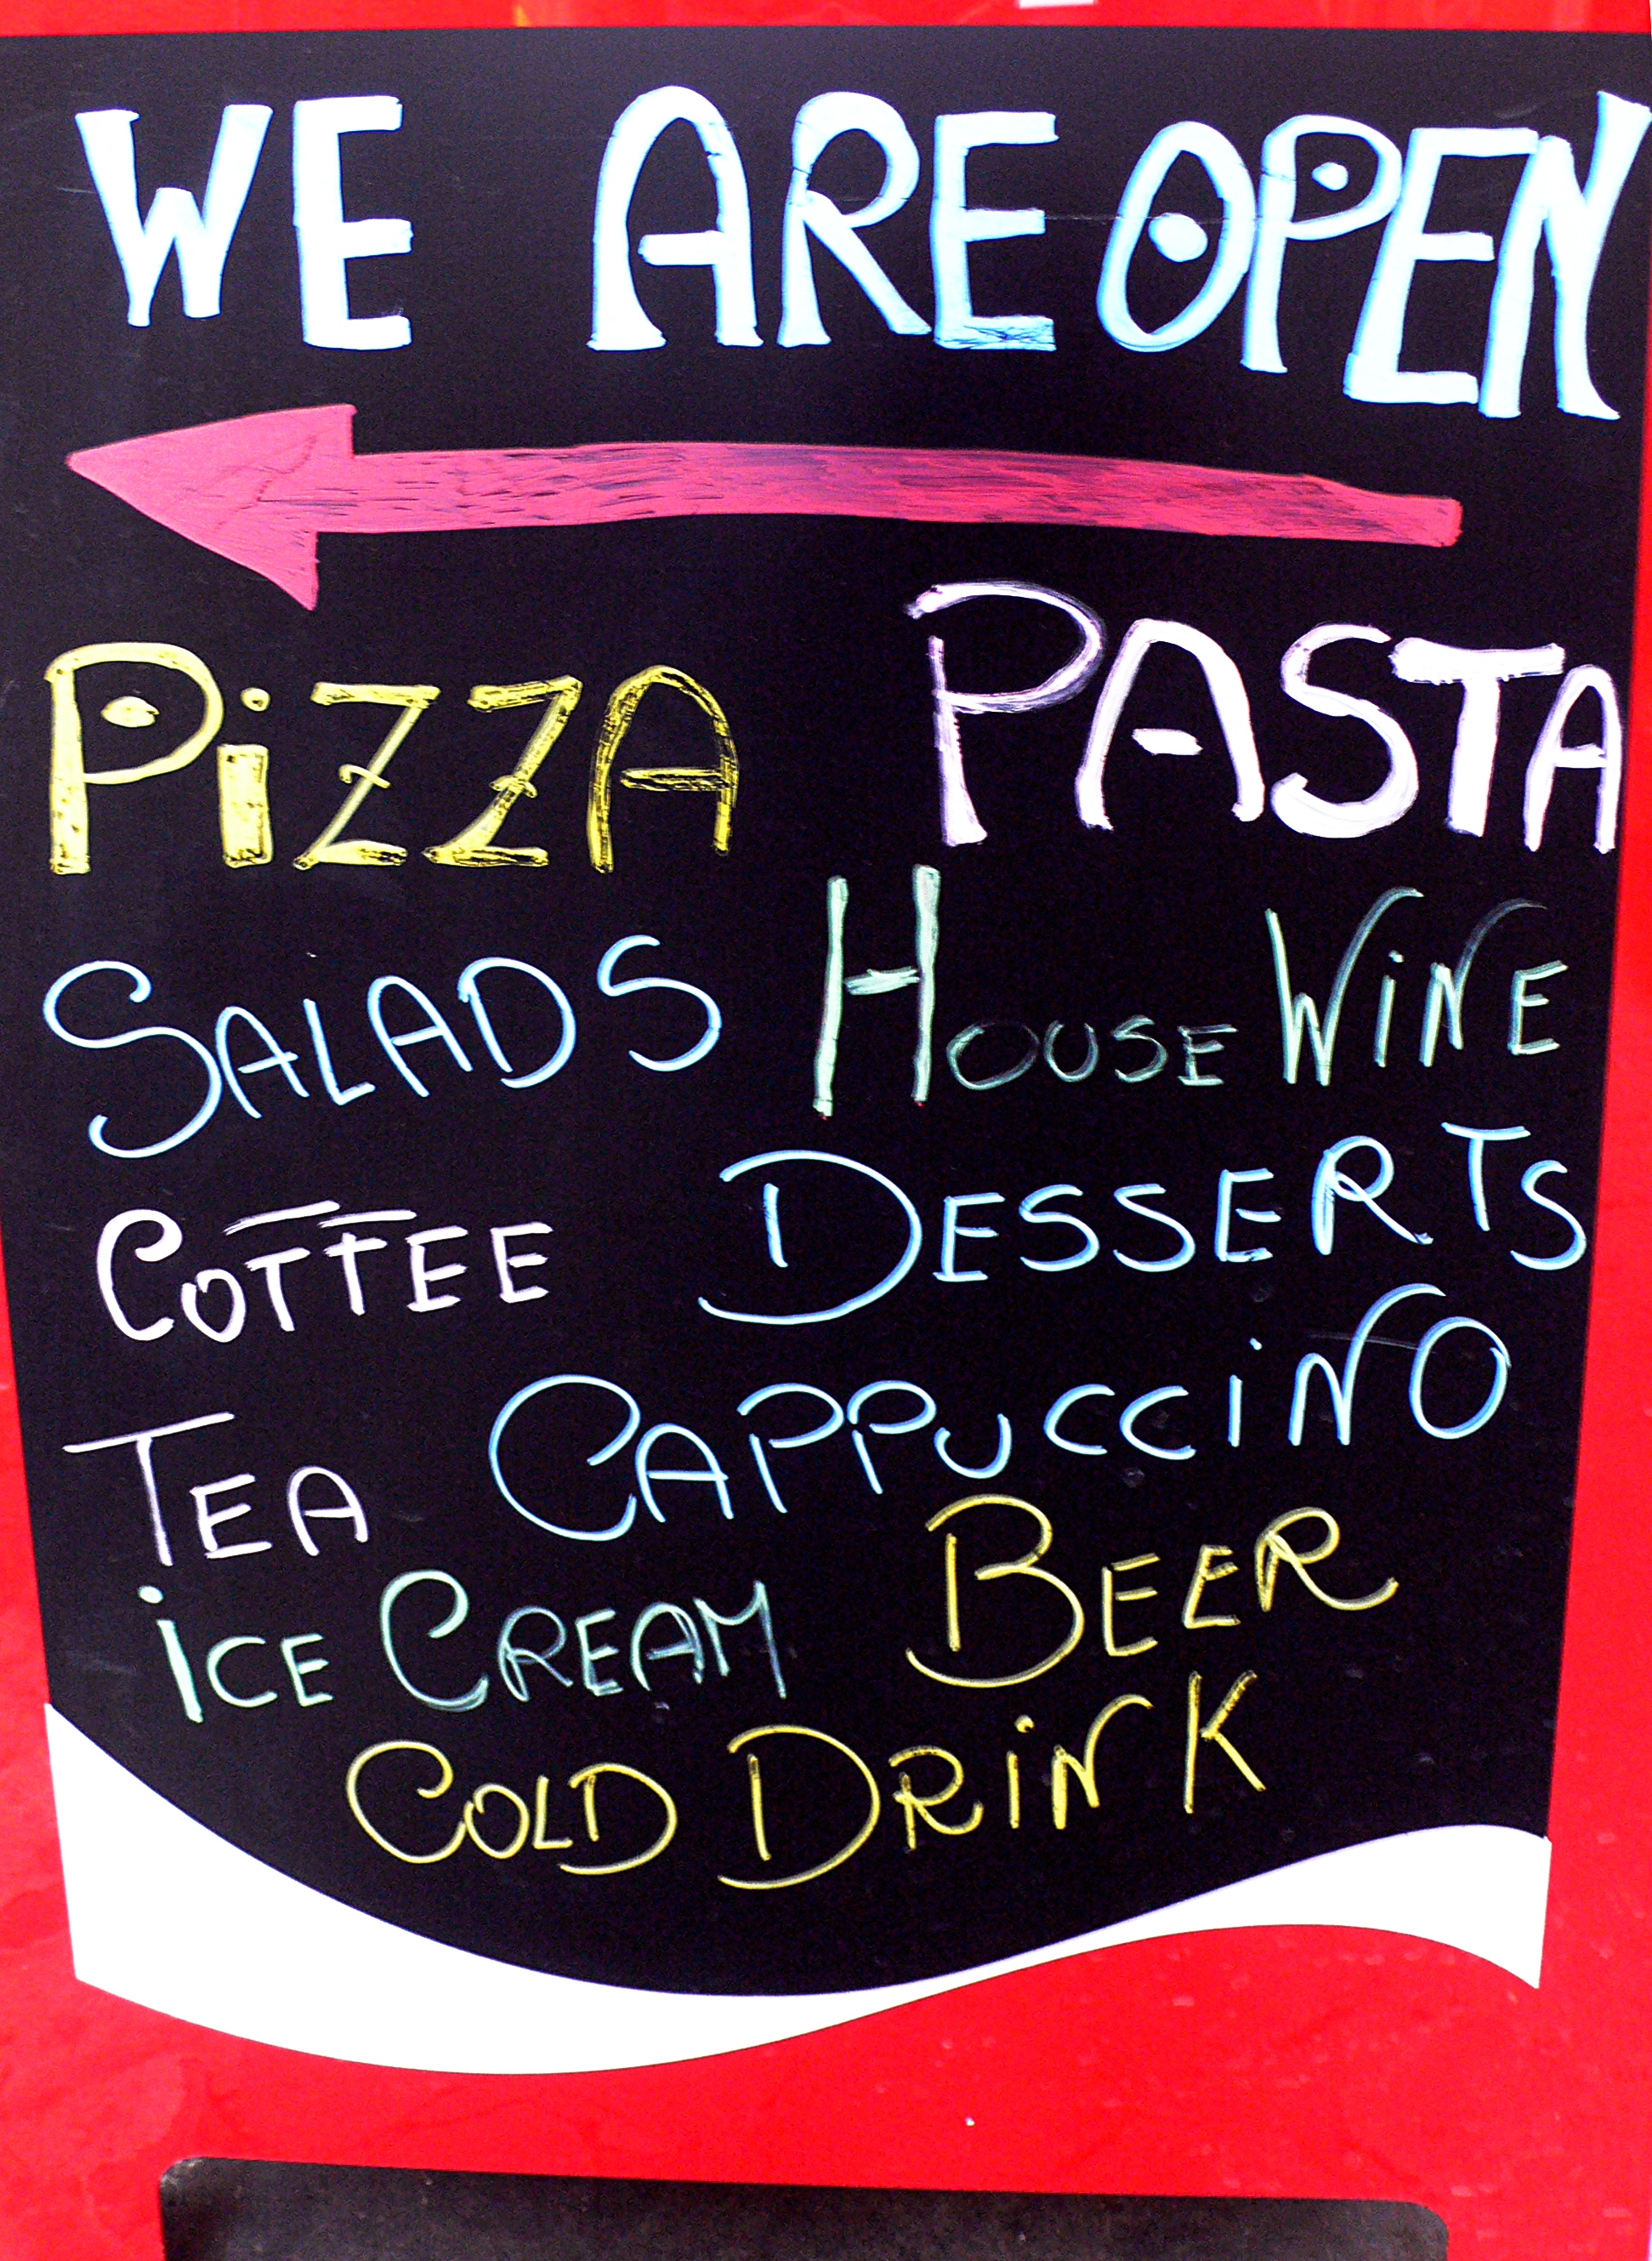 WE ARE OPEN
PiZZA PASTA
SALADS HOUSE WiNE
COFFEE DESSERTS
TEA CAPPUCCiNO
iCE CREAM BEER
COLD DRiNK